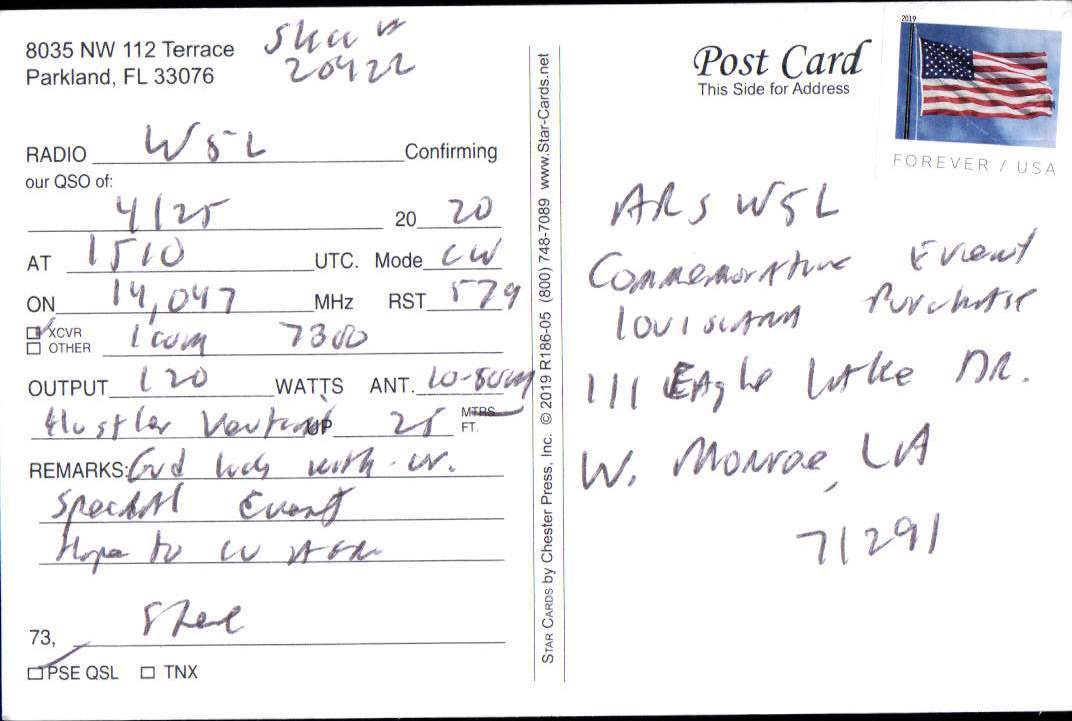 8035 NW 112 Terrace
Parkland, FL 33076
20422
RADIO W5L Confirming
our QSO of:
4/25 20 20
AT 1510 UTC. Mode CW
ON 14,047 MHz RST 579
XCVR
OTHER Icom 7300
OUTPUT 120 WATTS ANT. 10-80m
Hustler Vertical UP 25 MTRS
FT.
REMARKS: Gud luck with ur.
Special Event
Hope to CU AGN
73, Steve
PSE QSL TNX
STAR CARDS by Chester Press, Inc. © 2019 R186-05 (800) 748-7089 www.Star-Cards.net
Post Card
This Side for Address
2019
FOREVER / USA
ARS W5L
Commemorative Event
Louisiana Purchase
111 Eagle Lake DR.
W. Monroe, LA
71291